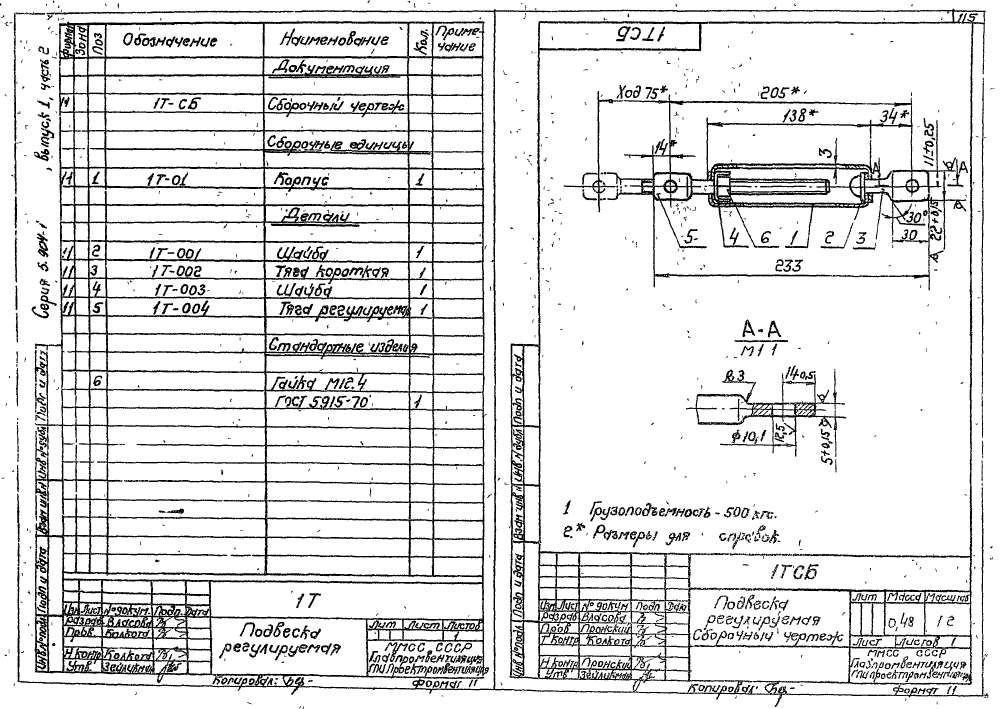 115
Серия 5.904-1, выпуск 1, часть 2
Формат Зона Поз Обозначение Наименование Кол. Приме-чание
Документация
11 1Т-СБ Сборочный чертеж
Сборочные единицы
11 1 1Т-01 Корпус 1
Детали
11 2 1Т-001 Шайба 1
11 3 1Т-002 Тяга короткая 1
11 4 1Т-003 Шайба 1
11 5 1Т-004 Тяга регулируемая 1
Стандартные изделия
6 Гайка М12.4
ГОСТ 5915-70 1
Инв № подл Подп и дата Взам инв № Инв № дубл Подп и дата
1Т
Изм Лист № докум. Подп. Дата
Разраб Власова
Пров. Колкота
Н контр Колкота
Утв. Зейликман
Подвеска
регулируемая
Лит Лист Листов
1
ММСС СССР
Главпромвентиляция
ГПИ Проектпромвентиляция
Копировал:
Формат 11
1ТСБ
Ход 75* 205*
138* 34*
14* 3 А А
11±0,25
22±0,15
30°
30
5 4 6 1 2 3
233
А-А
М1 1
R3 14±0,5
Ф10,1 12,5 5±0,15
1 Грузоподъемность - 500 кгс.
2.* Размеры для справок.
Инв № подл Подп и дата Взам инв № Инв № дубл Подп и дата
1ТСБ
Изм Лист № докум Подп Дата
Разраб Власова
Пров Пронский
Т контр Колкота
Н контр Пронский
Утв Зейликман
Подвеска
регулируемая
Сборочный чертеж
Лит Масса Масштаб
0,48 1 2
Лист Листов 1
ММСС СССР
Главпромвентиляция
ГПИ Проектпромвентиляция
Копировал:
Формат 11